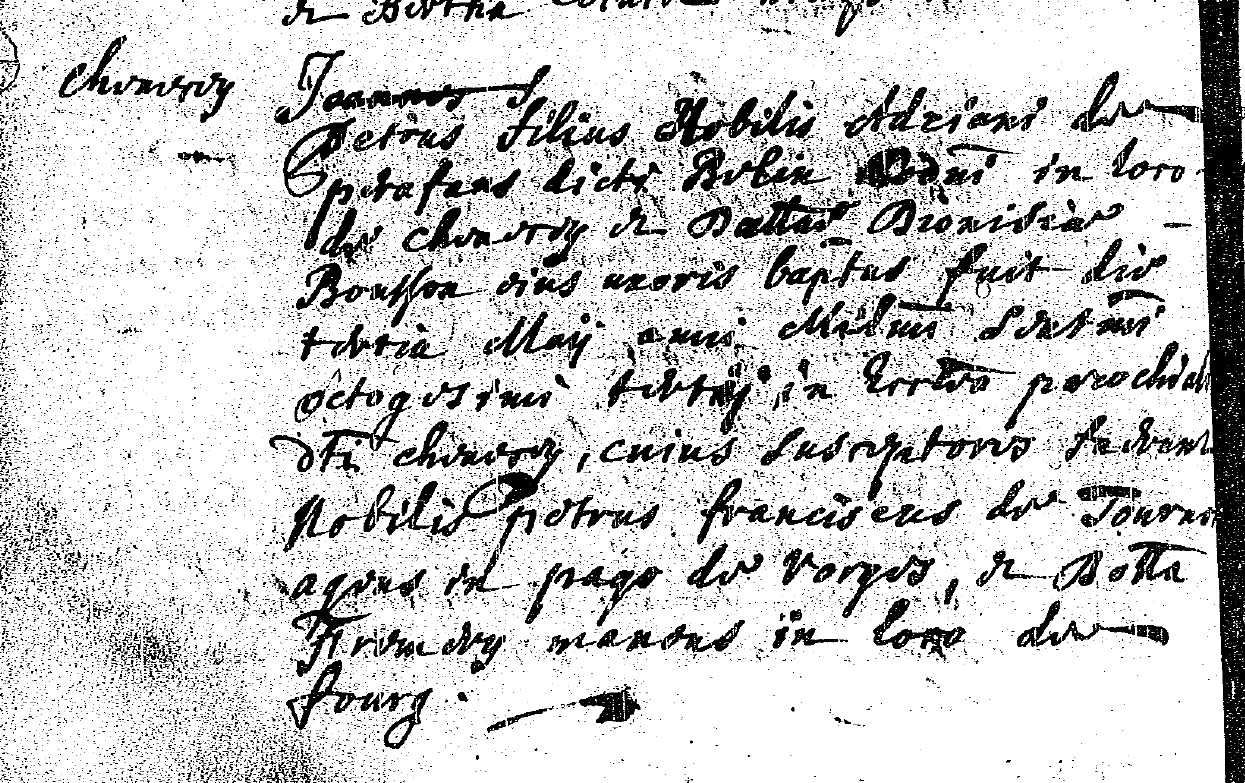 & Bertha
Chevroz Joannes S
Petrus filius Nobilis Adriani de
prafans dicti Belin Dñi in loco
de Chevroz & Dattæ Dionisiæ
Bousson eius uxoris baptus fuit die
tertia Maij anni Millmi Sextmi
octogesimi tertij in Ecclesia parochiali
dti Chevroz, cuius susceptores fuerunt
Nobilis petrus franciscus de Tournot
agens in pago de Vorges, & Dotta
manens in loco de
fourg.